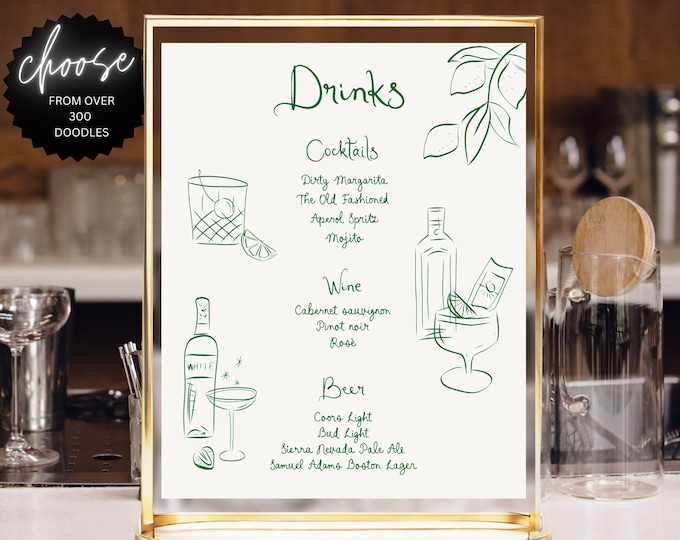 choose
FROM OVER
300
DOODLES
Drinks
Cocktails
Dirty Margarita
The Old Fashioned
Aperol Spritz
Mojito
Wine
Cabernet sauvignon
Pinot noir
Rosè
Beer
Coors Light
Bud Light
Sierra Nevada Pale Ale
Samuel Adams Boston Lager
WHITE